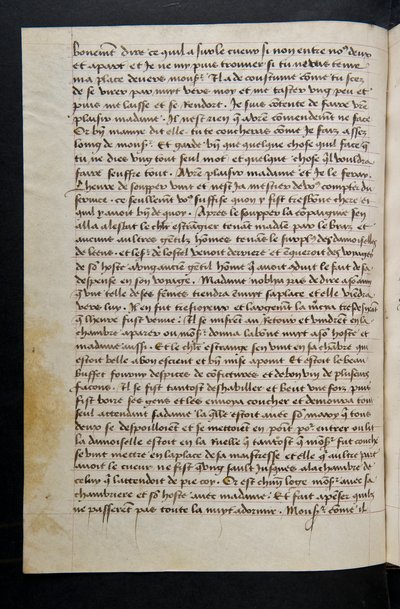 bonemẽt dire ce quil a sur le cueur si non entre noꝰ deux
et apart et je ne my puis trouver si tu ne viens tenir
ma place devers monsʳ. Il a de coustume cõme tu scez
de se virer par nuyt vers moy et me taster ung peu et
puis me laisse et se rendort. Je suis cõtente de faire vrẽ
plaisir madame. Il nest rien q̃ a vrẽ cõmendemẽt ne face
Or bñ mamie dit elle tu te coucheras cõme je fais assez
loing de monsʳ. Et garde bñ que quelque chose quil face q̃
tu ne dies ung tout seul mot et quelque chose q̃l vouldra
faire seuffre tout. A vrẽ plaisir madame et je le feray.
Lheure de soupper vint et nest ja mestier de voꝰ compter du
service ce seullemẽt voꝰ suffise quon y fist tresbõne chere et
quil y avoit bñ de quoy. Apres le soupper la cõpaignie sen
alla a lesbat le chlr̃ estrãgier tenãt madãe par le bras et
aucuns aultres gẽtilz hõmes tenãs le surplꝰ des damoiselles
de leens. et lesʳ de lostel venoit derriere et enqueroit des voyages
de sõ hoste a ung ancien gẽtil hõme q̃ avoit cõduit le fait de sa
despense en son voyage. Madame noblia pas de dire a son amy
q̃ une telle de ses fẽmes tiendra anuyt sa place et elle viẽdra
vers luy. Il en fut tresjoyeux et largemẽt la mercia tresdesirãt
q̃ lheure fust venue. Ilz se mirẽt au retour et vindrẽt en la
chambre a parer ou monsʳ donna la bõne nuyt a sõ hoste et
madame aussi. Et le chlr̃ estrange sen vint en sa chãbre qui
estoit belle a bon escient et bñ mise a point. Et estoit le beau
buffet fourny despices de cõfictures et de bon vin de pluseurs
facons. Il se fist tantost deshabiller et beut une fois puis
fist boire ses gens et les envoya coucher et demoura tout
seul attendant sa dame la q̃lle estoit avec sõ mary q̃ tous
deux se despoulloient et se mettoiẽt en poĩt poʳ entrer ou lit
La damoiselle estoit en la ruelle q̃ tantost q̃ monsʳ fut couche
se vint mettre en la place de sa maistresse et elle q̃ aultre part
avoit le cueur ne fist q̃ ung sault jusques a la chambre de
celuy q̃ lattendoit de pie coy. Or est chũn loge monsʳ avec sa
chambriere et sõ hoste avec madame. Et fait a pẽser quilz
ne passerent pas toute la nuyt a dormir. Monsʳ cõme il